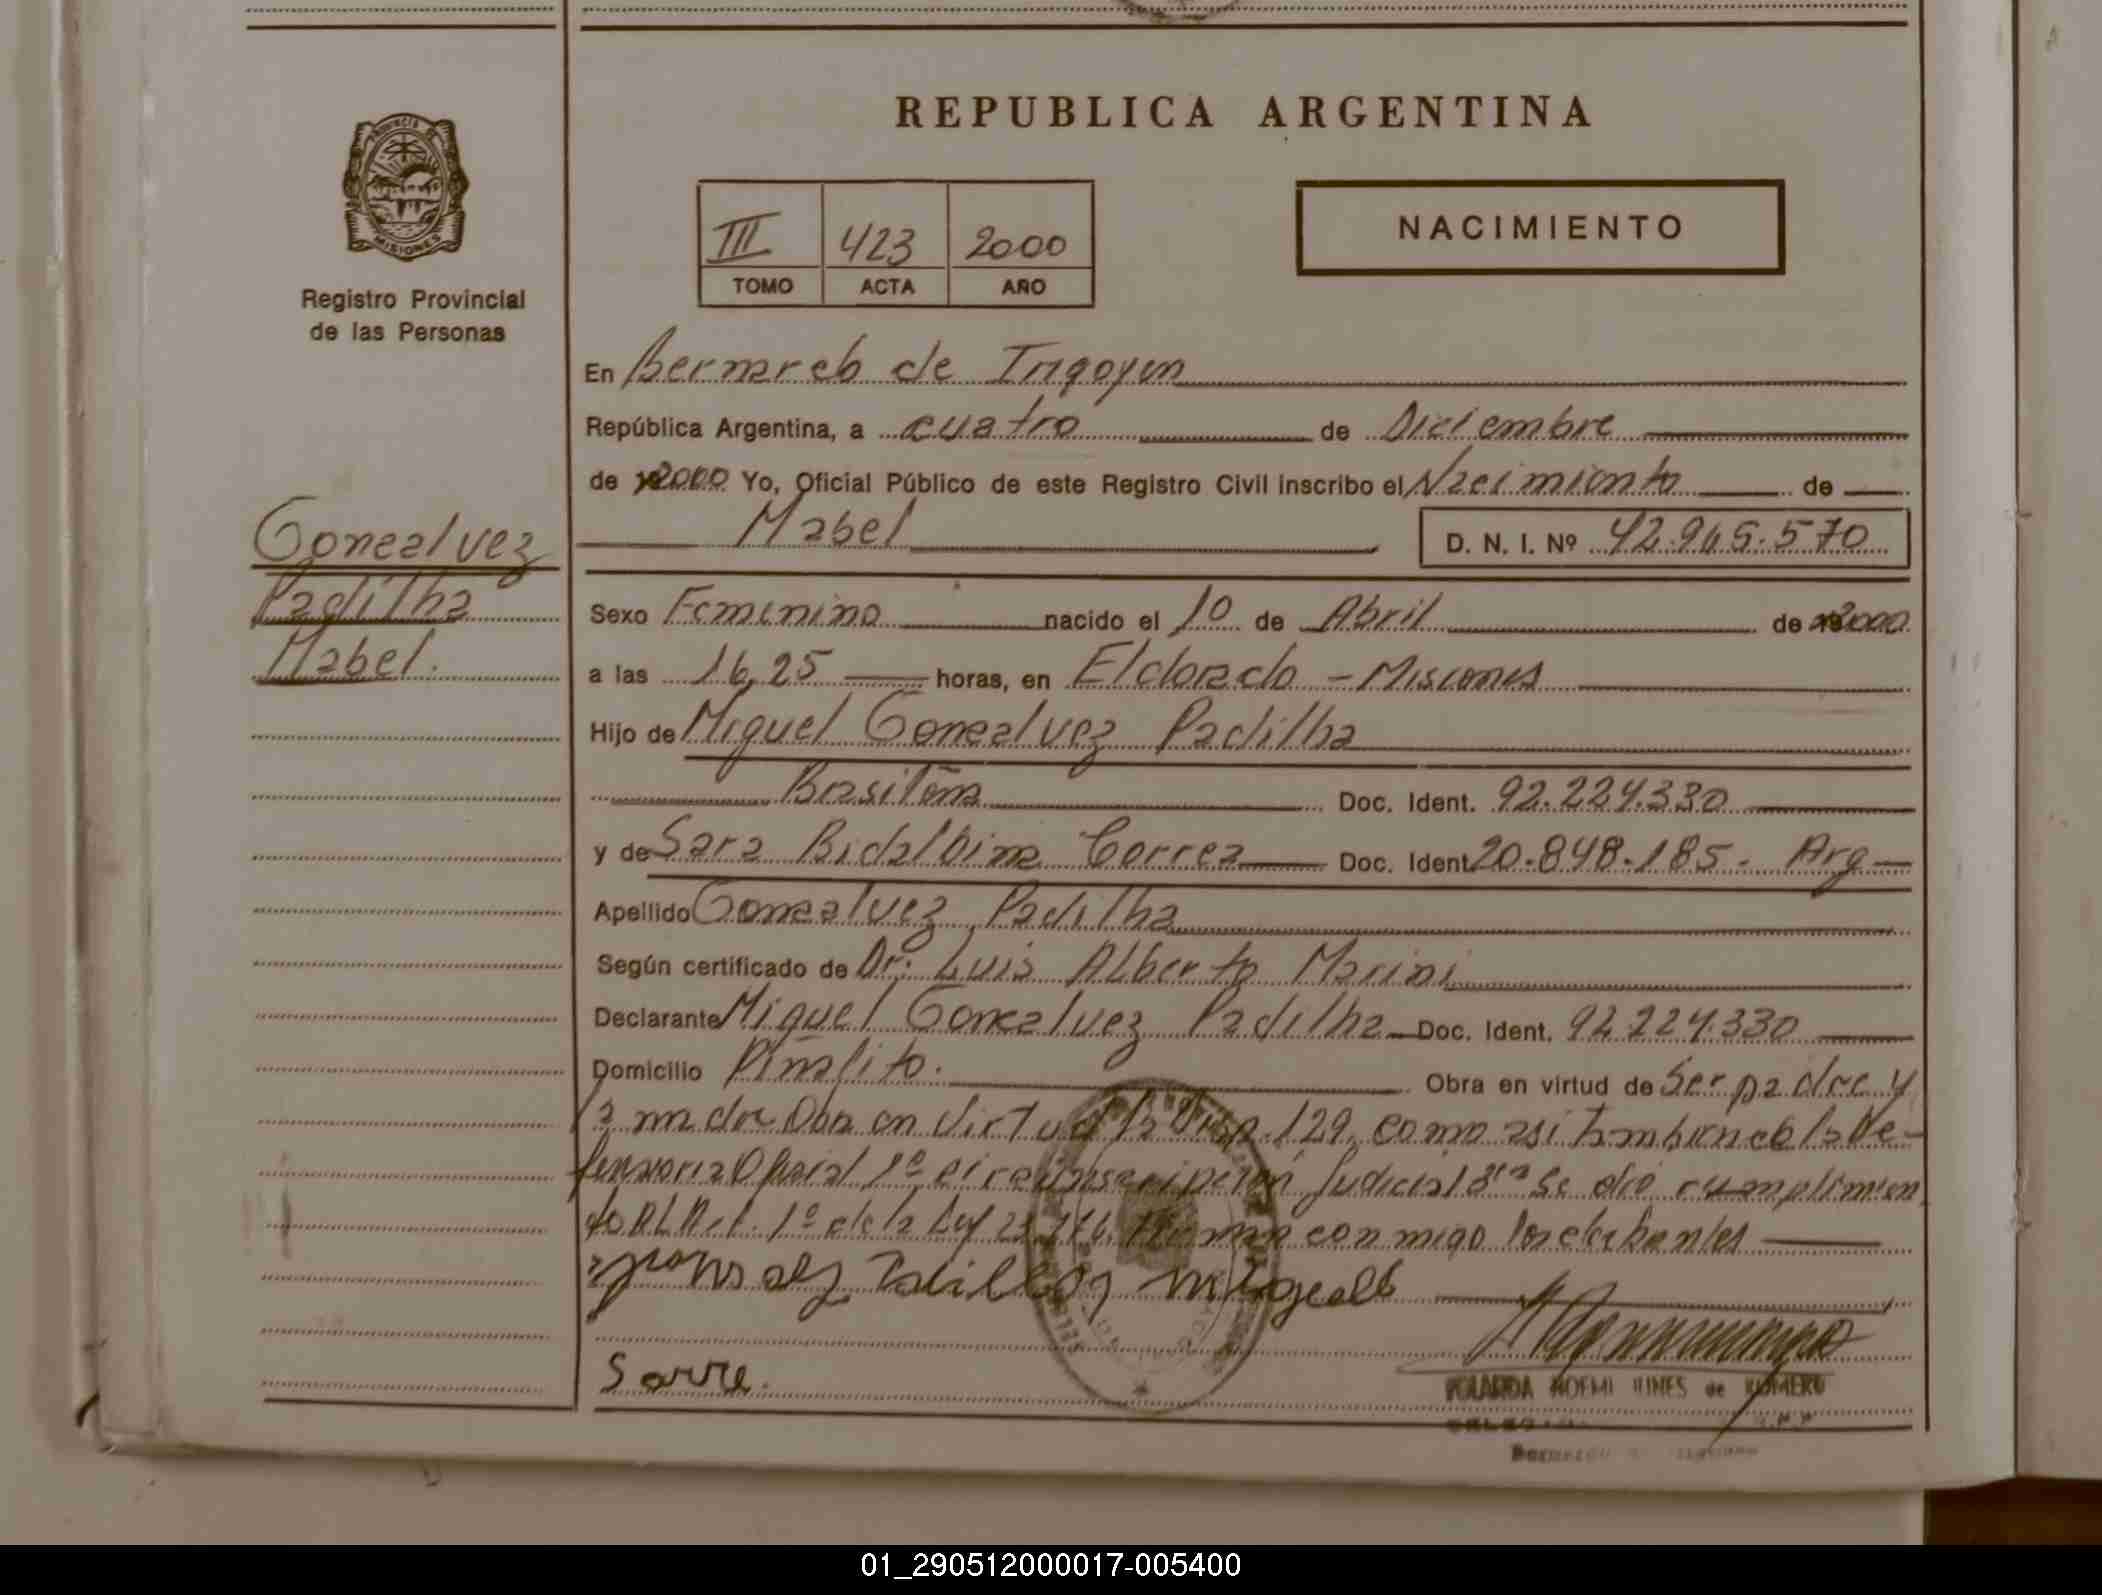 REPUBLICA ARGENTINA
Provincia de
MISIONES
Registro Provincial
de las Personas
III 423 2000
TOMO ACTA AÑO
NACIMIENTO
En Bernardo de Irigoyen
República Argentina, a cuatro de Diciembre
de 2000 Yo, Oficial Público de este Registro Civil inscribo el Nacimiento de
Mabel
D. N. I. Nº 42.965.570
Goncalvez
Padilha
Mabel.
Sexo Femenino nacido el 10 de Abril de 2000
a las 16,25 horas, en Eldorado - Misiones
Hijo de Miguel Goncalvez Padilha
Brasileña Doc. Ident. 92.224.330
y de Sara Bidalbina Correa Doc. Ident. 20.848.185. Arg
Apellido Goncalvez Padilha
Según certificado de Dr. Luis Alberto Marini
Declarante Miguel Goncalvez Padilha Doc. Ident. 92.224.330
Domicilio Piñalito. Obra en virtud de Ser padre y
la madre en virtud 129, como asi tambien de la De-
fensoria Oficial 1º circunscripción Judicial 3ra Se dió cumplimien
to Al Art. 1º de la Ley Firman conmigo los
Sarre.
YOLANDA NOEMI de ROMERO
01_290512000017-005400